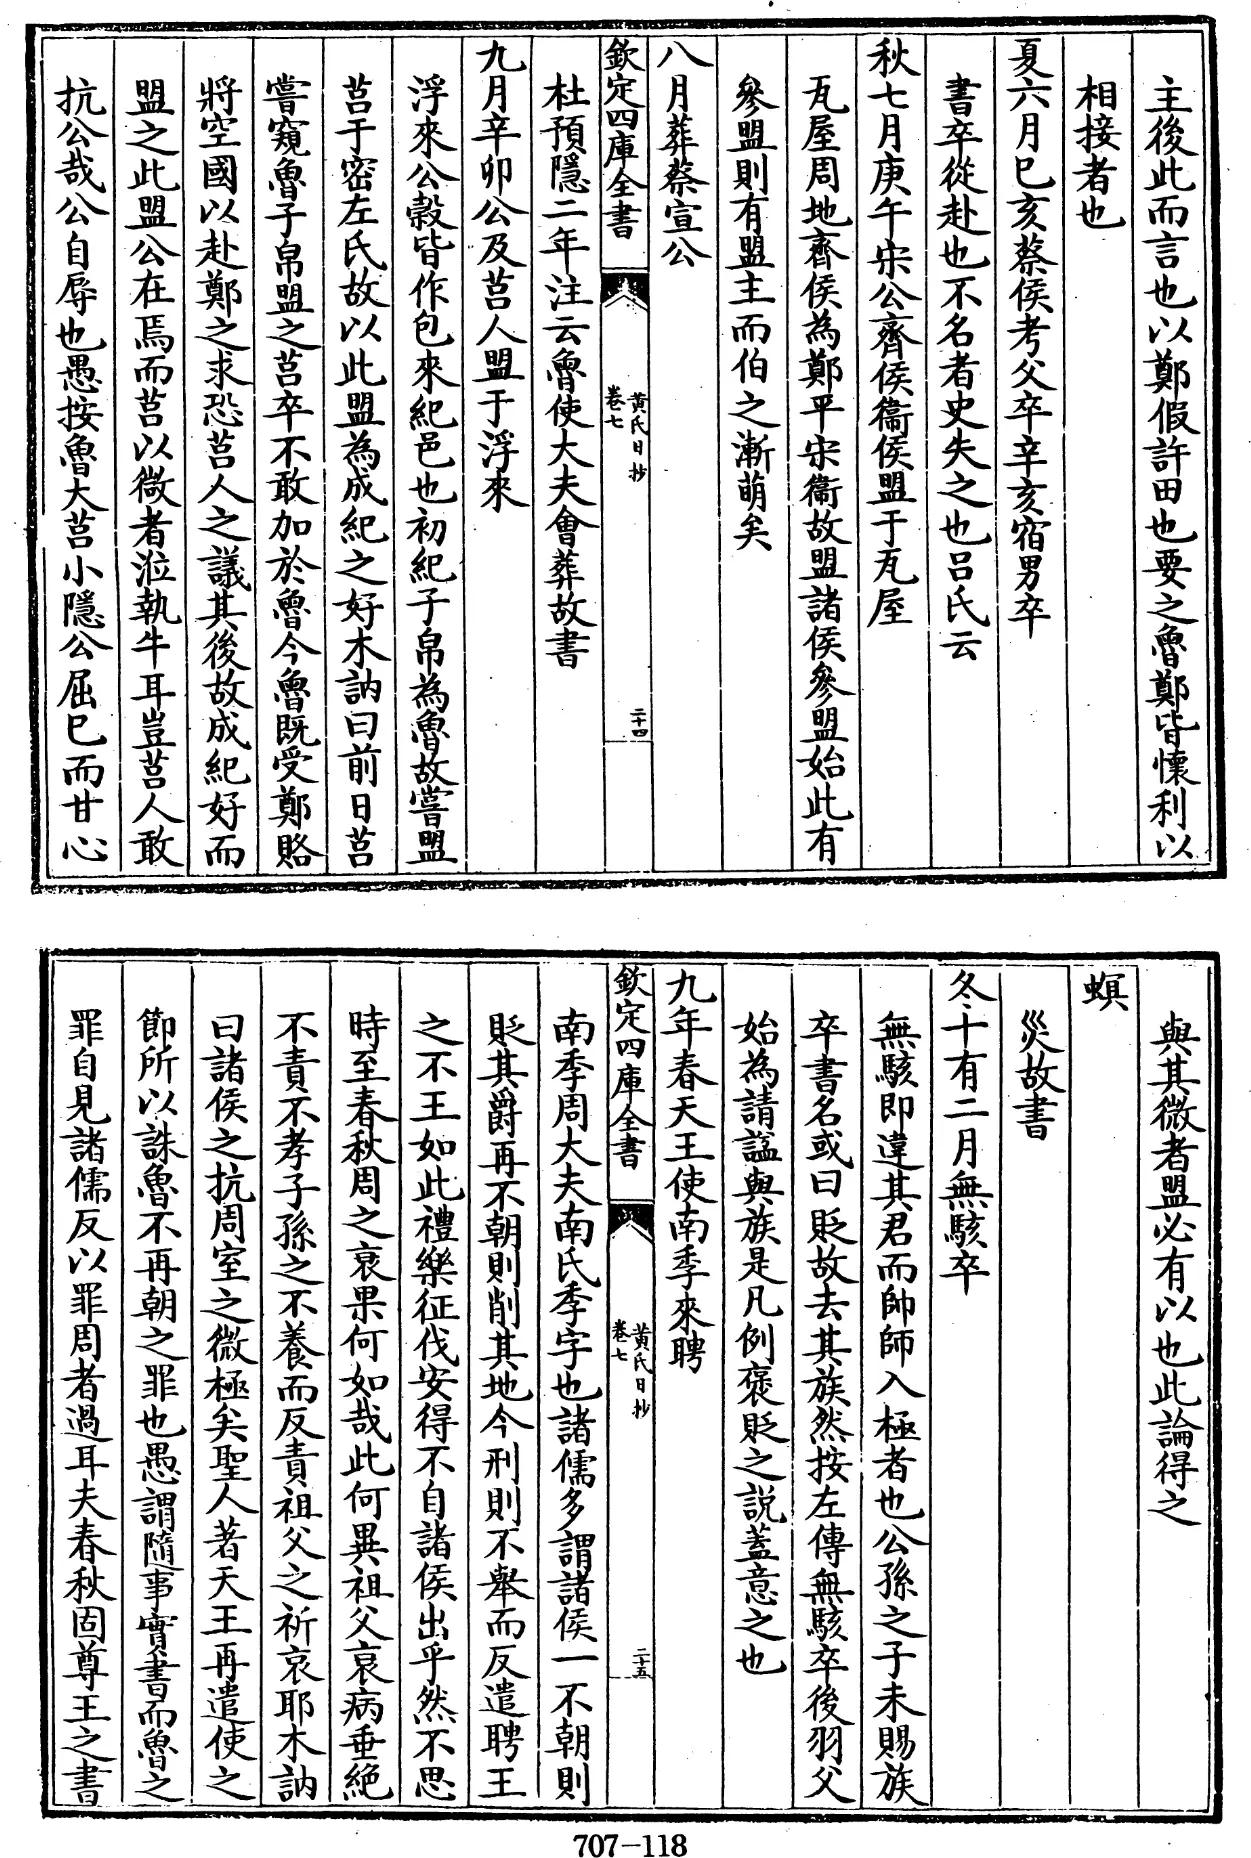 主後此而言也以鄭假許田也要之魯鄭皆懷利以
相接者也
夏六月已亥蔡侯考父卒辛亥宿男卒
書卒從赴也不名者史失之也呂氏云
秋七月庚午宋公齊侯衞侯盟于瓦屋
瓦屋周地齊侯為鄭平宋衞故盟諸侯參盟始此有
參盟則有盟主而伯之漸萌矣
八月葬蔡宣公
欽定四庫全書
黃氏日抄
卷七
二十四
杜預隱二年注云魯使大夫會葬故書
九月辛卯公及莒人盟于浮來
浮來公穀皆作包來紀邑也初紀子帛為魯故嘗盟
莒于密左氏故以此盟為成紀之好木訥曰前日莒
嘗窺魯子帛盟之莒卒不敢加於魯今魯既受鄭賂
將空國以赴鄭之求恐莒人之議其後故成紀好而
盟之此盟公在焉而莒以微者涖執牛耳豈莒人敢
抗公哉公自辱也愚按魯大莒小隱公屈已而甘心
與其微者盟必有以也此論得之
螟
災故書
冬十有二月無駭卒
無駭即違其君而帥師入極者也公孫之子未賜族
卒書名或曰貶故去其族然按左傳無駭卒後羽父
始為請諡與族是凡例褒貶之說蓋意之也
九年春天王使南季來聘
欽定四庫全書
黃氏日抄
卷七
二十五
南季周大夫南氏季字也諸儒多謂諸侯一不朝則
貶其爵再不朝則削其地今刑則不舉而反遣聘王
之不王如此禮樂征伐安得不自諸侯出乎然不思
時至春秋周之衰果何如哉此何異祖父衰病垂絕
不責不孝子孫之不養而反責祖父之祈哀耶木訥
曰諸侯之抗周室之微極矣聖人著天王再遣使之
節所以誅魯不再朝之罪也愚謂隨事實書而魯之
罪自見諸儒反以罪周者過耳夫春秋固尊王之書
707-118